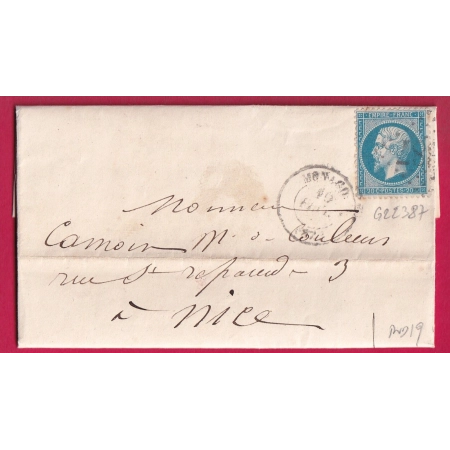 EMPIRE FRANC
20 C POSTES 20 C
MONACO
GC2387
Monsieur
Camoin Md de Couleurs
rue St
3
à Nice